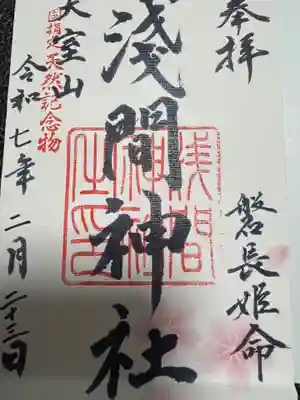 奉拝
磐長姫命
浅間神社
大室山
国指定天然記念物
令和七年二月二十三日